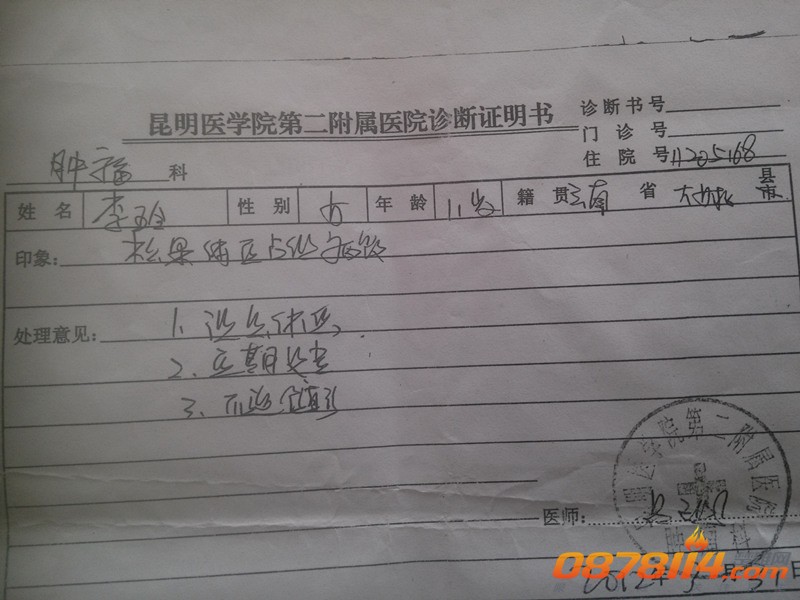 昆明医学院第二附属医院诊断证明书
诊断书号
门诊号
住院号 11205168
肿瘤 科
姓名 李 性别 女 年龄 11岁 籍贯 云南 省 大姚 县市
印象: 松果体区占位
处理意见: 1、注意休息
2、定期复查
3、不适随诊
医学院第二附属医院
医师:
肿瘤科
2012年5月 日
0878114.com